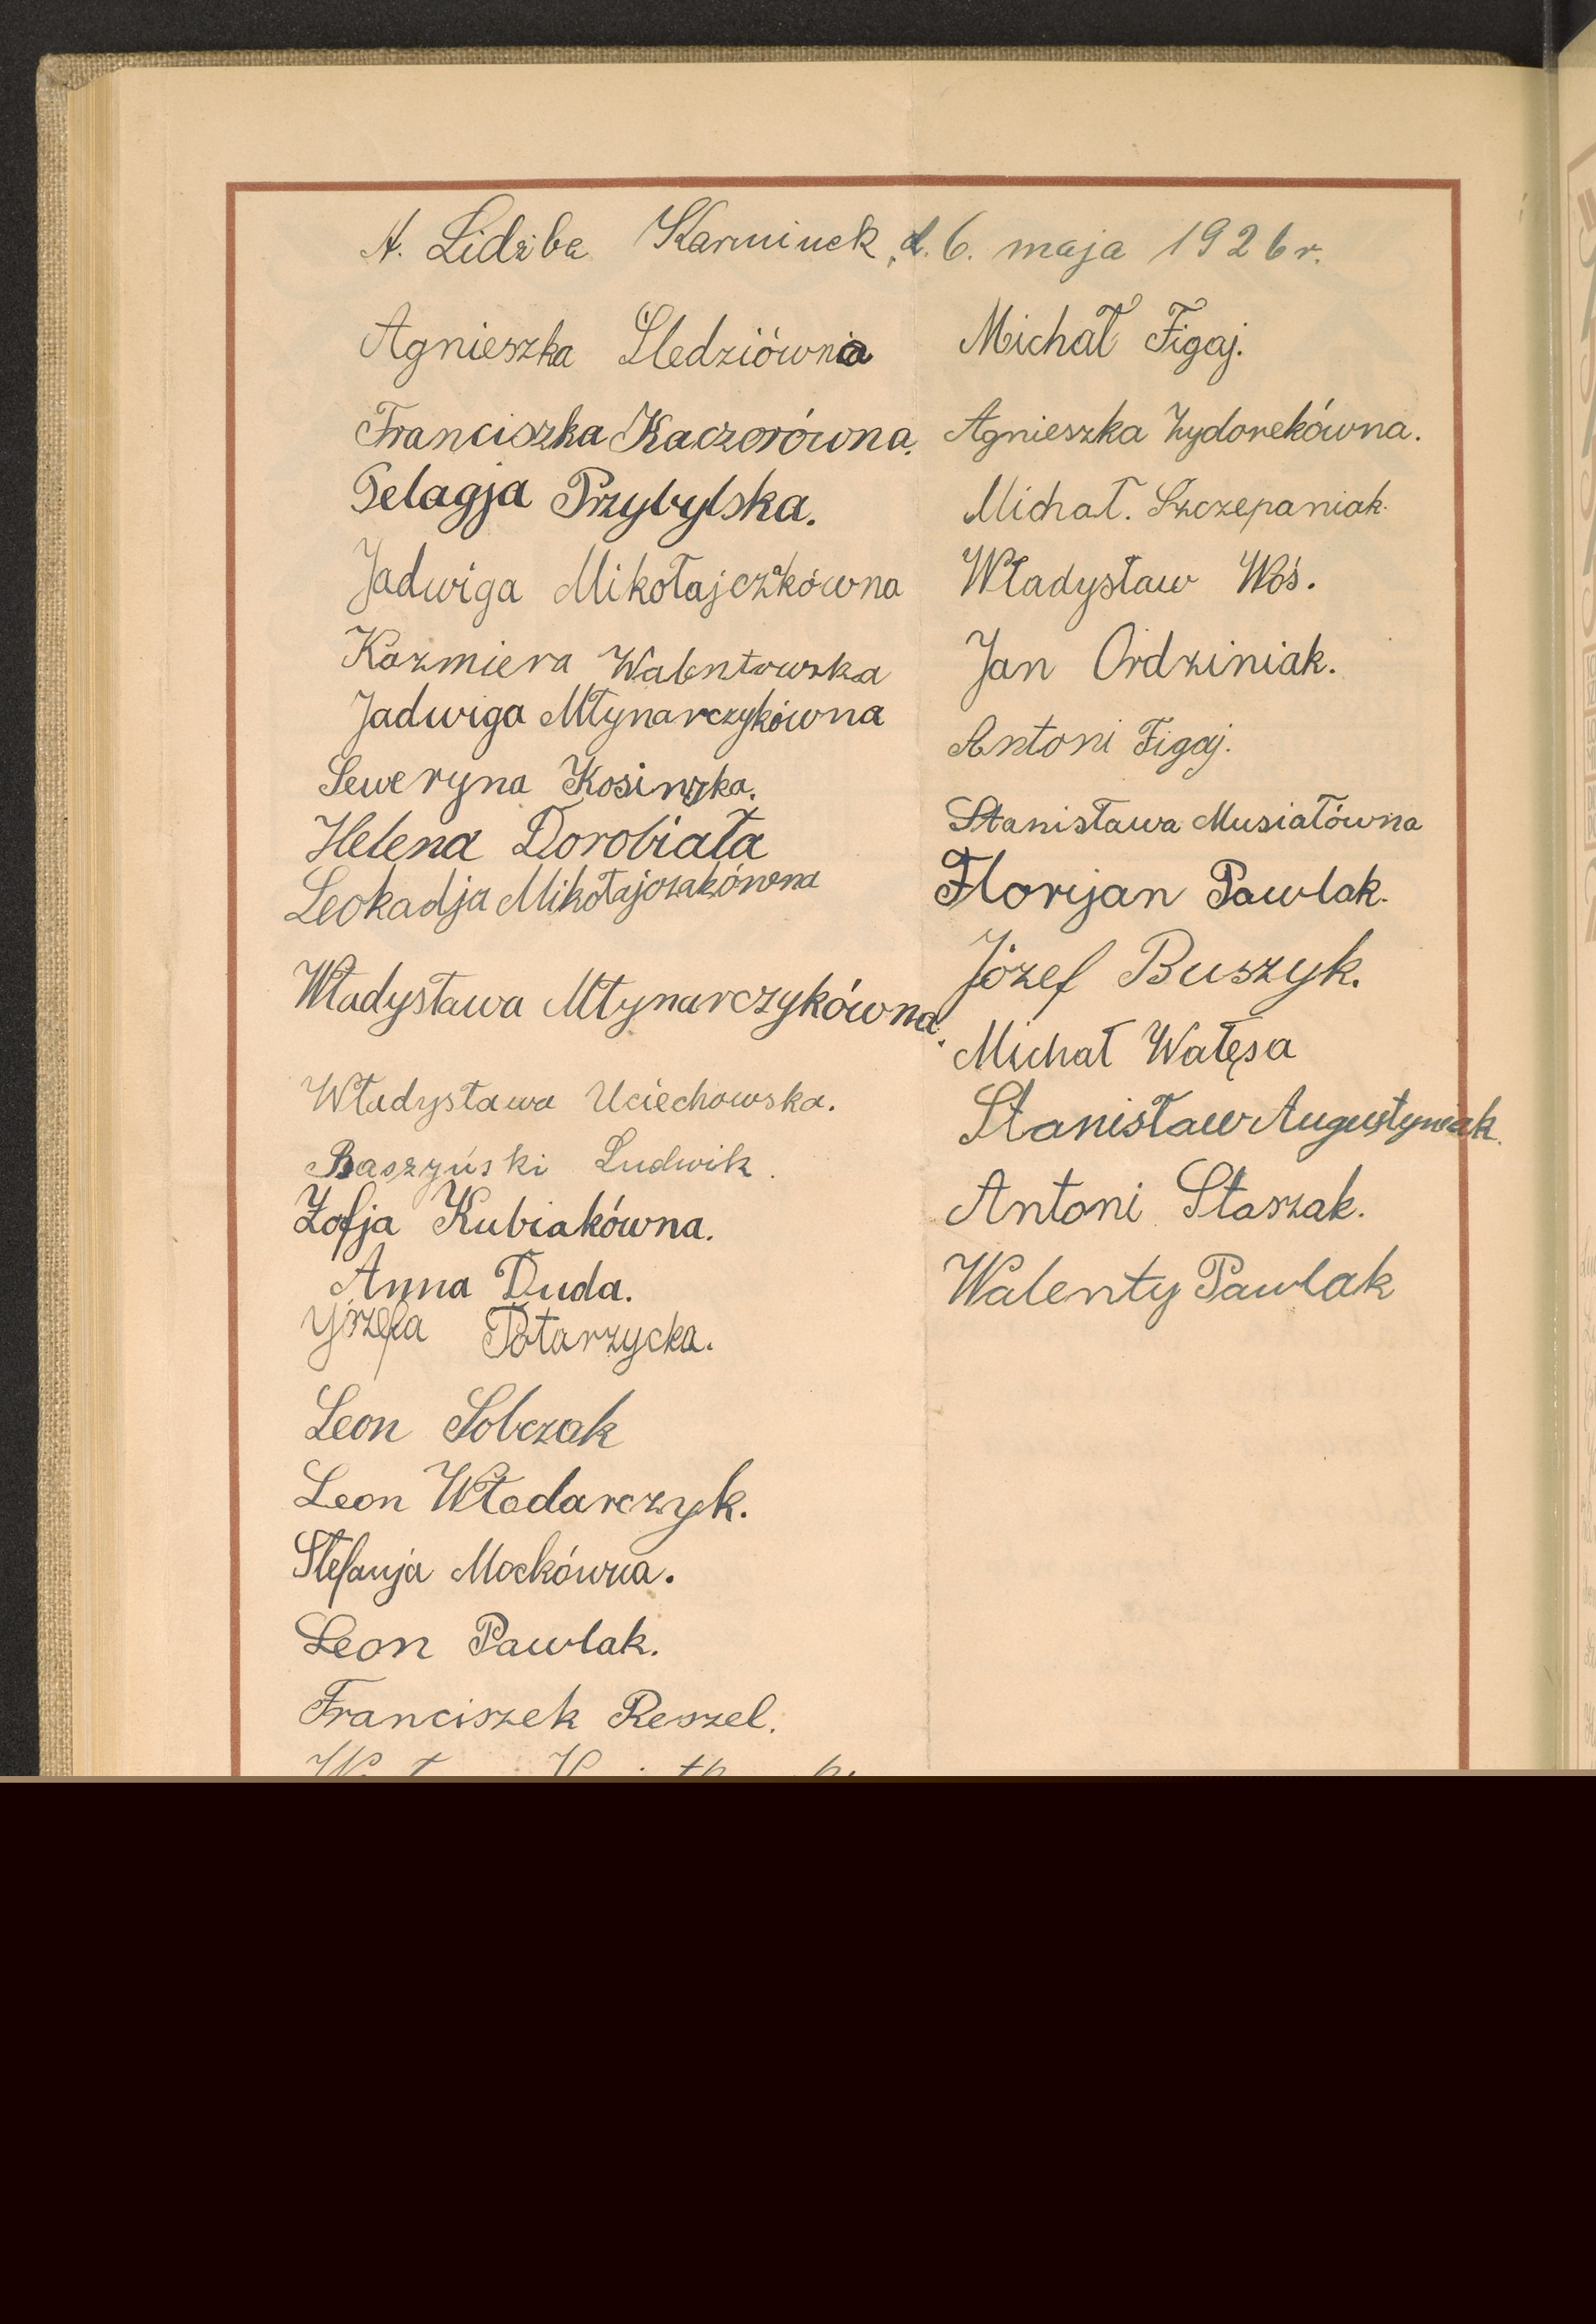 A. Lidziba Karminek, d. 6. maja 1926 r.
Agnieszka Śledziówna
Franciszka Kaczorówna.
Pelagja Przybylska.
Jadwiga Mikołajczakówna
Kazmiera Walentowska
Jadwiga Młynarczykówna
Seweryna Kosinska.
Helena Dorobiała
Leokadja Mikołajczakówna
Władysława Młynarczykówna.
Władysława Uciechowska.
Baszyński Ludwik.
Zofja Kubiakówna.
Anna Duda.
Józefa Potarzycka.
Leon Sobczak
Leon Włodarczyk.
Stefanja Mockówna.
Leon Pawlak.
Franciszek Reszel.
Michał Figaj.
Agnieszka Zydorekówna.
Michał. Szczepaniak.
Władysław Woś.
Jan Ordziniak.
Antoni Figaj.
Stanisława Musiałówna
Florjan Pawlak.
Józef Buszyk.
Michał Wałęsa
Stanisław Augustyniak.
Antoni Staszak.
Walenty Pawlak